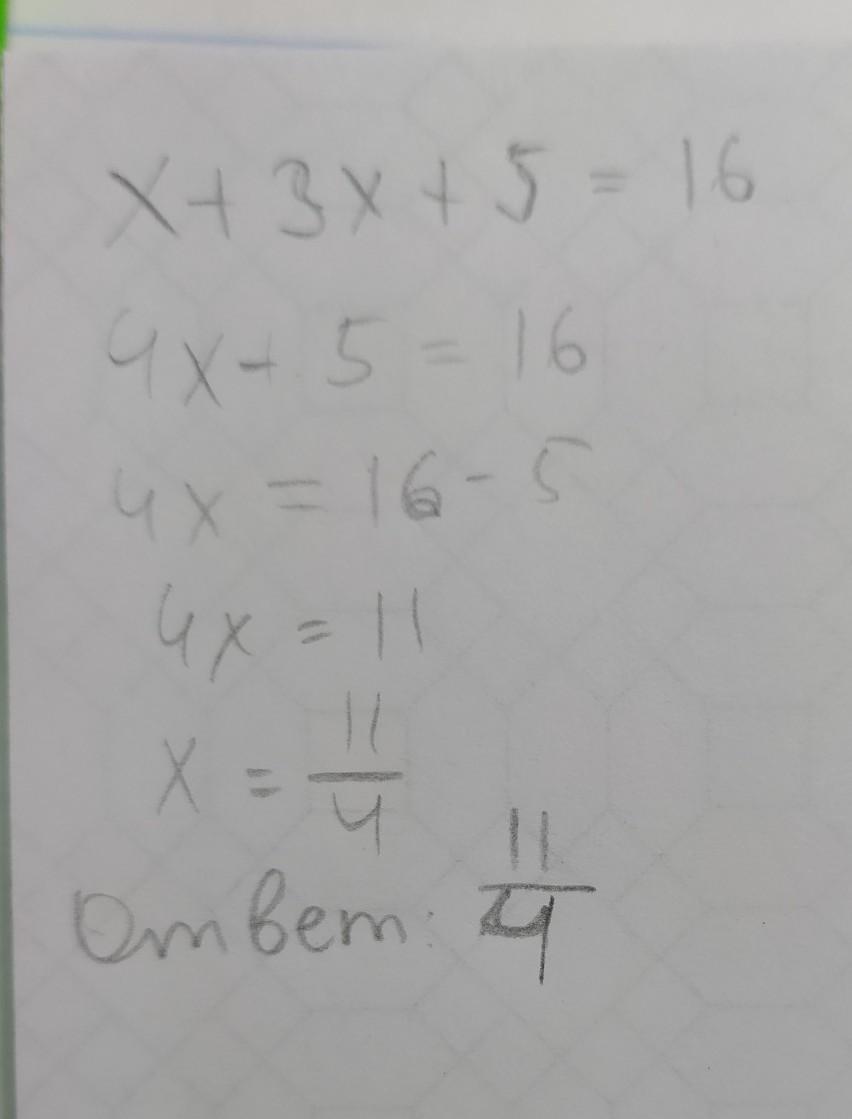 x + 3x + 5 = 16
4x + 5 = 16
4x = 16 - 5
4x = 11
x = 11/4
Ответ: 11/4